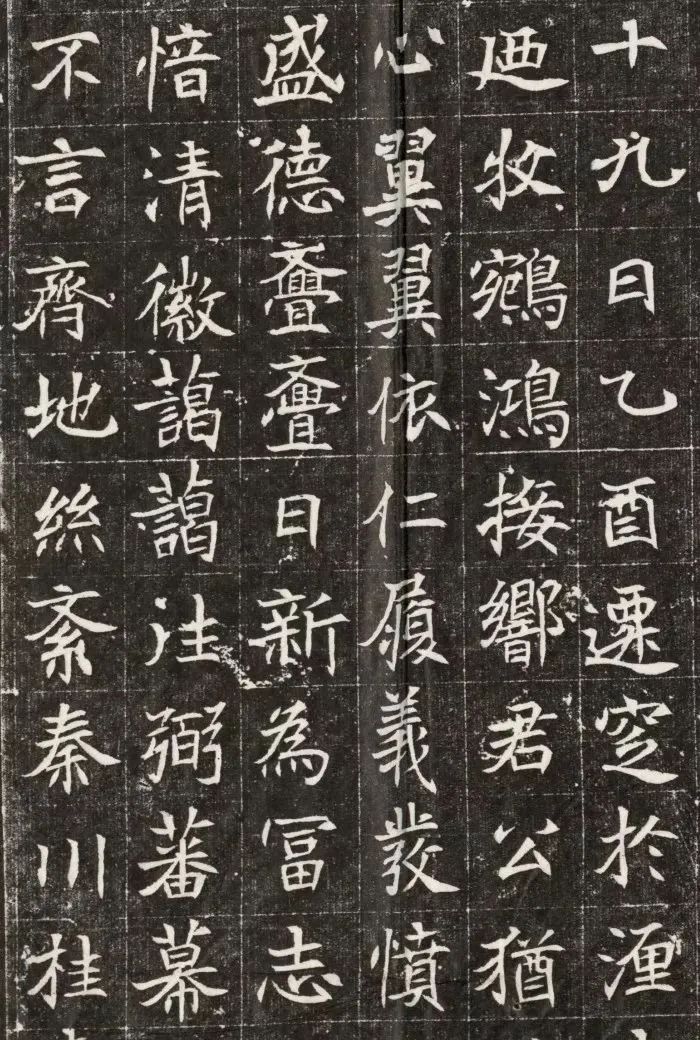 十九日乙酉遷窆於湮
廼牧鵷鴻接響君公猶
心翼翼依仁履義發憤
盛德亹亹日新為冨志
愔清徽藹藹注弼蕃幕
不言齊地絲紊秦川桂